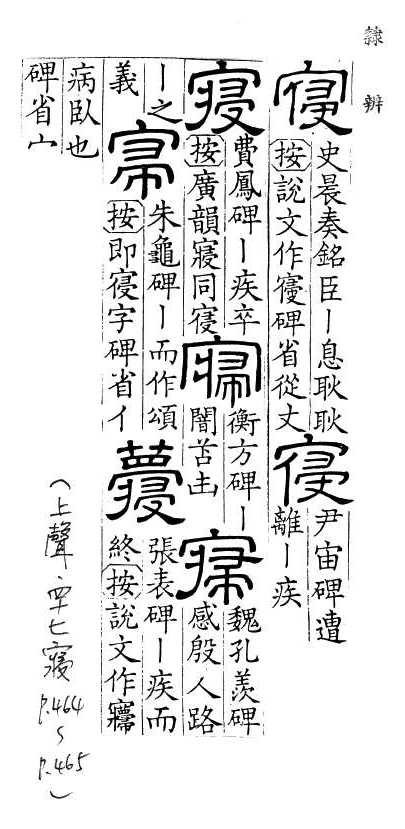 隸辨
寑
史晨奏銘臣丨息耿耿
按說文作寑碑省從丈
寑
尹宙碑遭
離丨疾
寑
費鳳碑丨疾卒
按廣韻寢同寑
衡方碑丨
闇苫甴
魏孔羨碑
感殷人路
丨之
義
朱龜碑丨而作頌
按即寑字碑省亻
張表碑丨疾而
終按說文作
病臥也
碑省宀
(上聲·四十七寑 p.464~p.465)